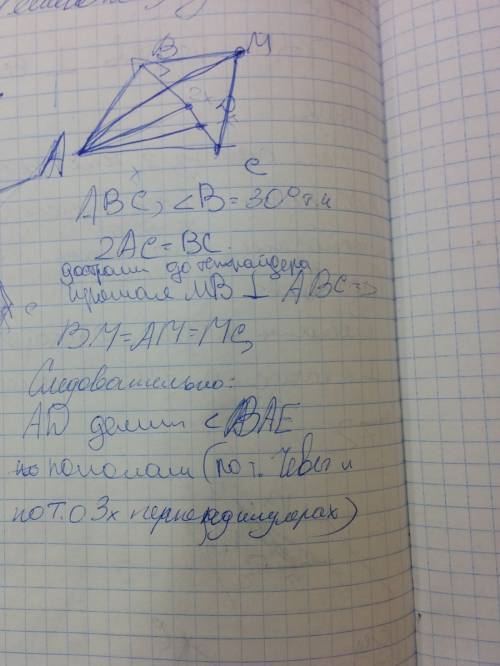 B M
A
C
ABC, <B = 30° т.к
2AC = BC.
достроим до тетраэдера
прямая MB ⊥ ABC =>
BM = AM = MC,
Следовательно:
AD делит <BAE
пополам (по т. Чевы и
по т. о 3х перпендикулярах)